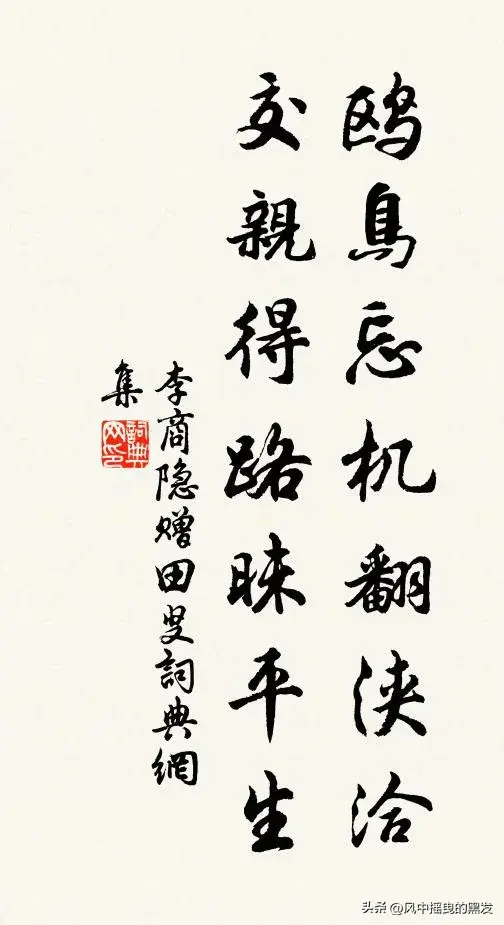 鸥鳥忘机翻浹洽
交親得路昧平生
李商隐赠田叟詞典網
集
詞典网印
头条 @风中摇曳的黑发